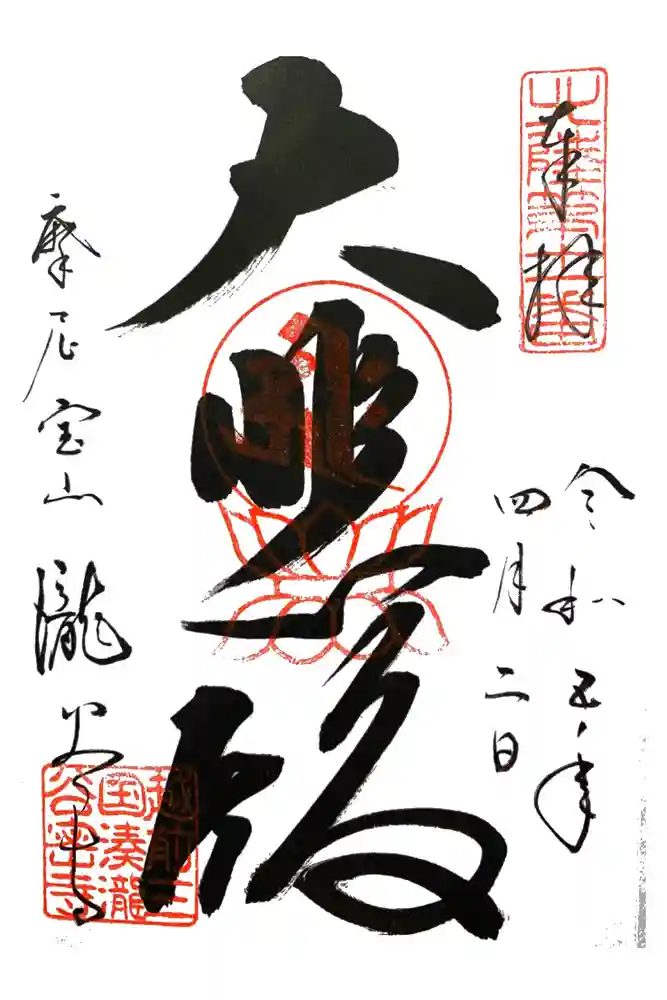 奉拝
令和五年
四月二日
大悲殿
摩尼宝山 瀧谷寺
越前三
国湊瀧
谷密寺